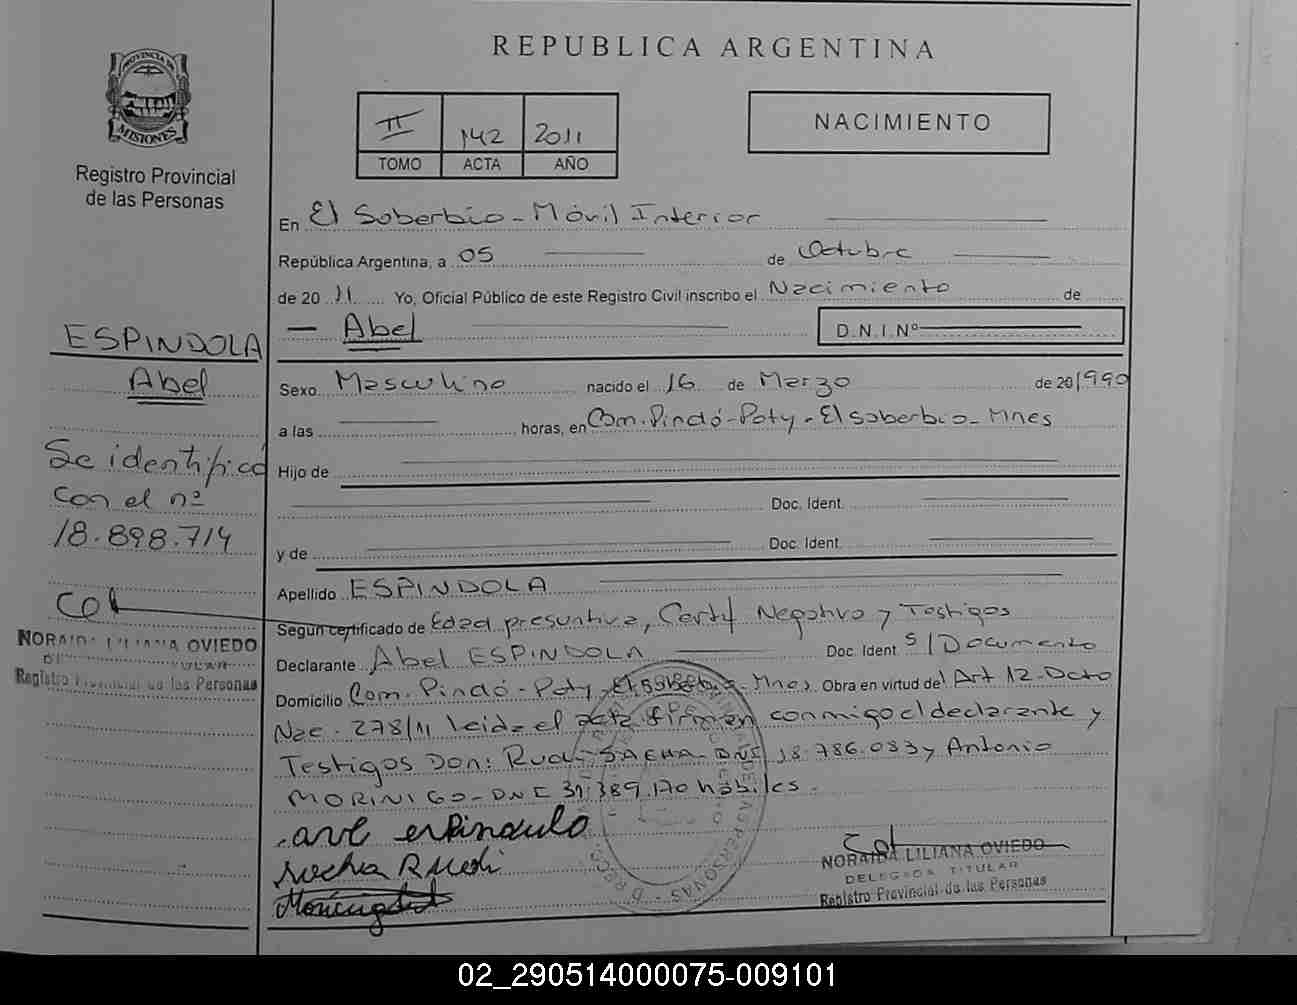 REPUBLICA ARGENTINA
PROVINCIA DE
MISIONES
Registro Provincial
de las Personas
II 142 2011
TOMO ACTA AÑO
NACIMIENTO
En El Soberbio - Móvil Interior
República Argentina, a 05 de Octubre
de 20 11 Yo, Oficial Público de este Registro Civil inscribo el Nacimiento de
— Abel D.N.I.Nº
ESPINDOLA
Abel
Se identificó
con el nº
18.898.714
NORAIDA LILIANA OVIEDO
Registro Provincial de las Personas
Sexo Masculino nacido el 16 de Marzo de 20 1990
a las horas, en Com. Pindó-Poty - El Soberbio - Mnes
Hijo de
Doc. Ident.
y de Doc. Ident.
Apellido ESPINDOLA
Segun certificado de Edad presuntiva, Certf Negativo y Testigos
Declarante Abel ESPINDOLA Doc. Ident. S/Documento
Domicilio Com. Pindó-Poty - El Soberbio - Mnes. Obra en virtud del Art 12 - Dcto
Nac. 278/11 leida el acta firman conmigo el declarante y
Testigos Don: DNI 18.786.083 y Antonio
MORINIGO - DNI 31.389.170 hábiles.
NORAIDA LILIANA OVIEDO
DELEGADA TITULAR
Registro Provincial de las Personas
02_290514000075-009101